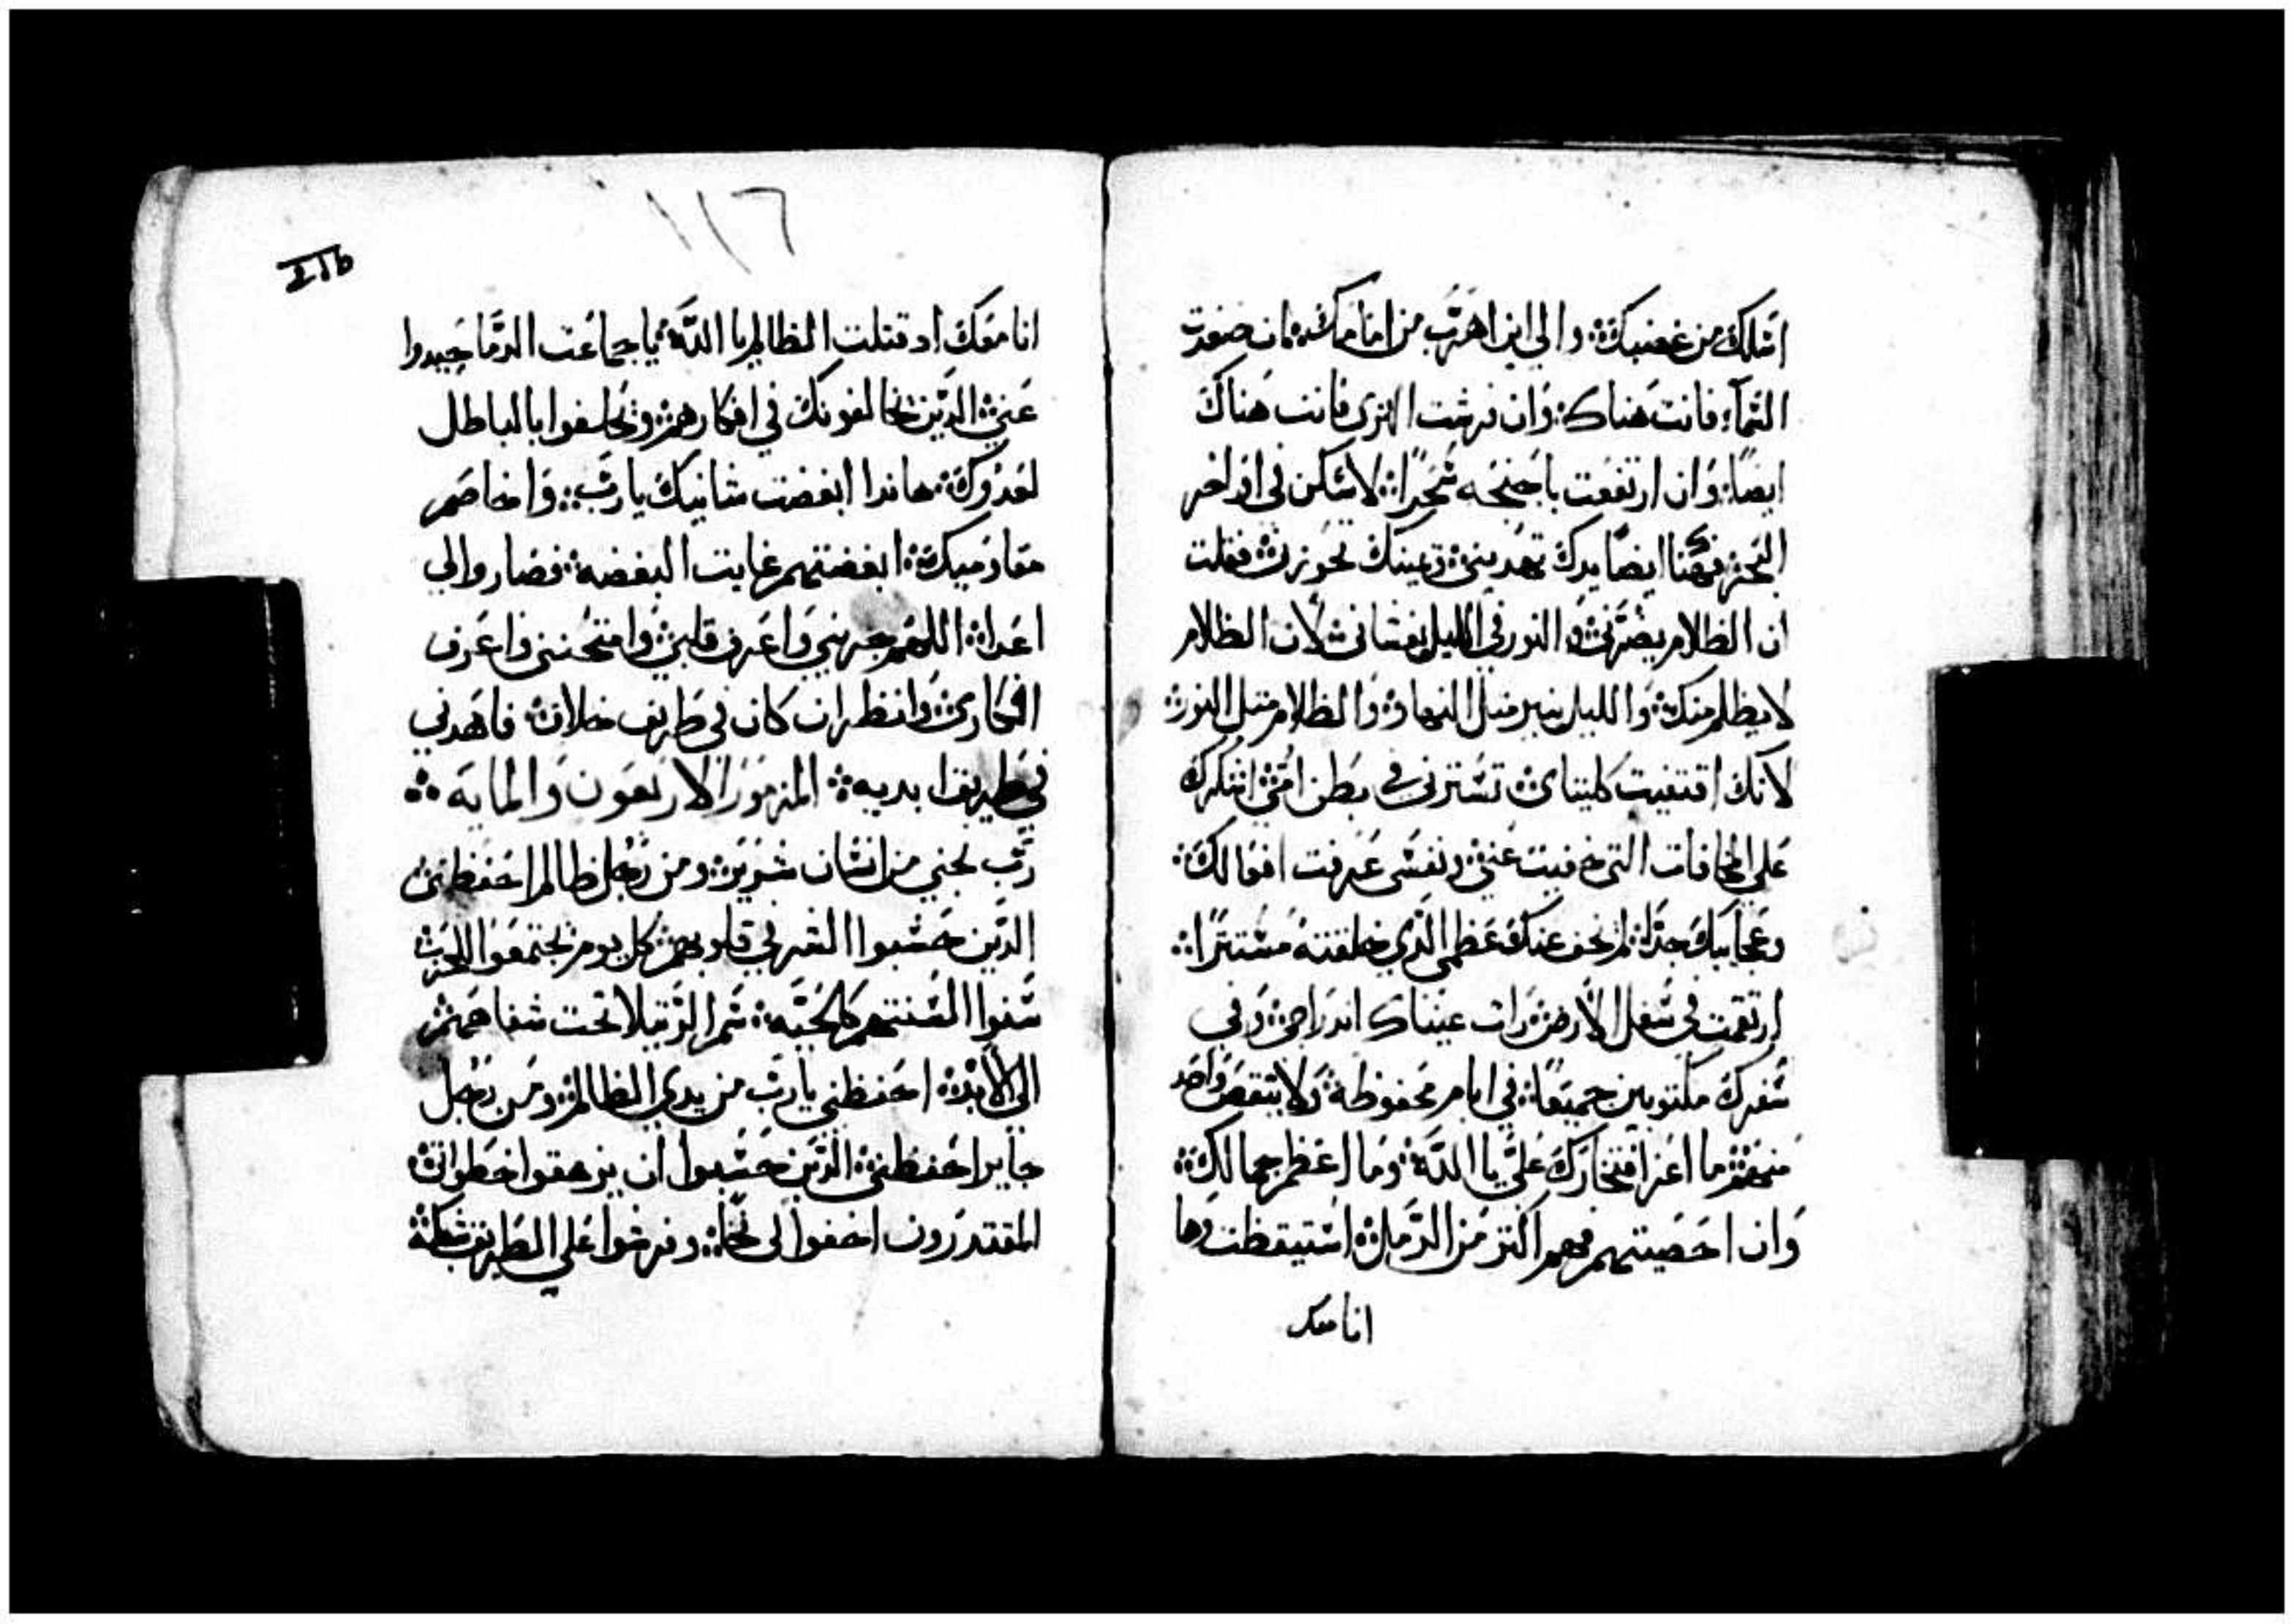 اسلك من غضبك؛ والي اين اهرب من امامك؛ ان صعدت
السماء؛ فانت هناك؛ وان فرشت الثرى فانت هناك
ايضا؛ وان ارتفعت باجنحه سحرا؛ لاسكن في اواخر
البحر؛ فههنا ايضا يدك تهديني؛ ويمينك تحوزني؛ فقلت
ان الظلام يضرني؛ والنور في الليل يغشاني؛ لان الظلام
لا يظلم منك؛ والليل ينير متل النهار؛ والظلام متل النور؛
لانك اقتنيت كليتاي؛ تسترني في بطن امي؛ اشكرك
علي المخافات التي خفيت عني؛ ونفسى عرفت افعالك؛
وعجايبك جدا؛ لم تخف عنك عظمي الذي خلقته مستترا؛
ارتقمت في سفل الارض؛ رات عيناك اندراجي؛ وفي
سفرك مكتوبين جميعا؛ في ايام محفوظة؛ ولا ينقص واحد
منهم؛ ما اعز افتخارك علي يا الله؛ وما اعظم جمالك؛
وان احصيتهم فهم اكتر من الرمل؛ استيقظت وها
انا معك
١١٦
انا معك اد قتلت الظالم يا الله؛ يا جماعت الدما حيدوا
عني؛ الدين يخالفونك في افكارهم؛ وتحلفوا بالباطل
لعدوك؛ هاندا ابغضت شانيك يا رب؛ واخاصم
مقاوميك؛ ابغضتهم غايت البغضه؛ فصاروا لي
اعدا؛ اللهم جربني واعرف قلبي؛ وامتحنني واعرف
افكاري؛ وانظر ان كان في طريق خلاف؛ فاهدني
في طريق ابديه؛ المزمور الاربعون والمايه
رب نجني من انسان شرير؛ ومن رجل ظالم احفظني؛
الدين حسبوا الشر في قلوبهم؛ كل يوم يجتمعوا للحرب؛
سنوا السنتهم كالحيه؛ سم الرتيلا تحت شفاههم؛
الي الابد؛ احفظني يا رب من يدي الظالم؛ ومن رجل
جاير احفظني؛ الدين حسبوا ان يزهقوا خطواتي؛
المقتدرون اخفوا لي فخا؛ وفرشوا علي الطريق شبكة؛